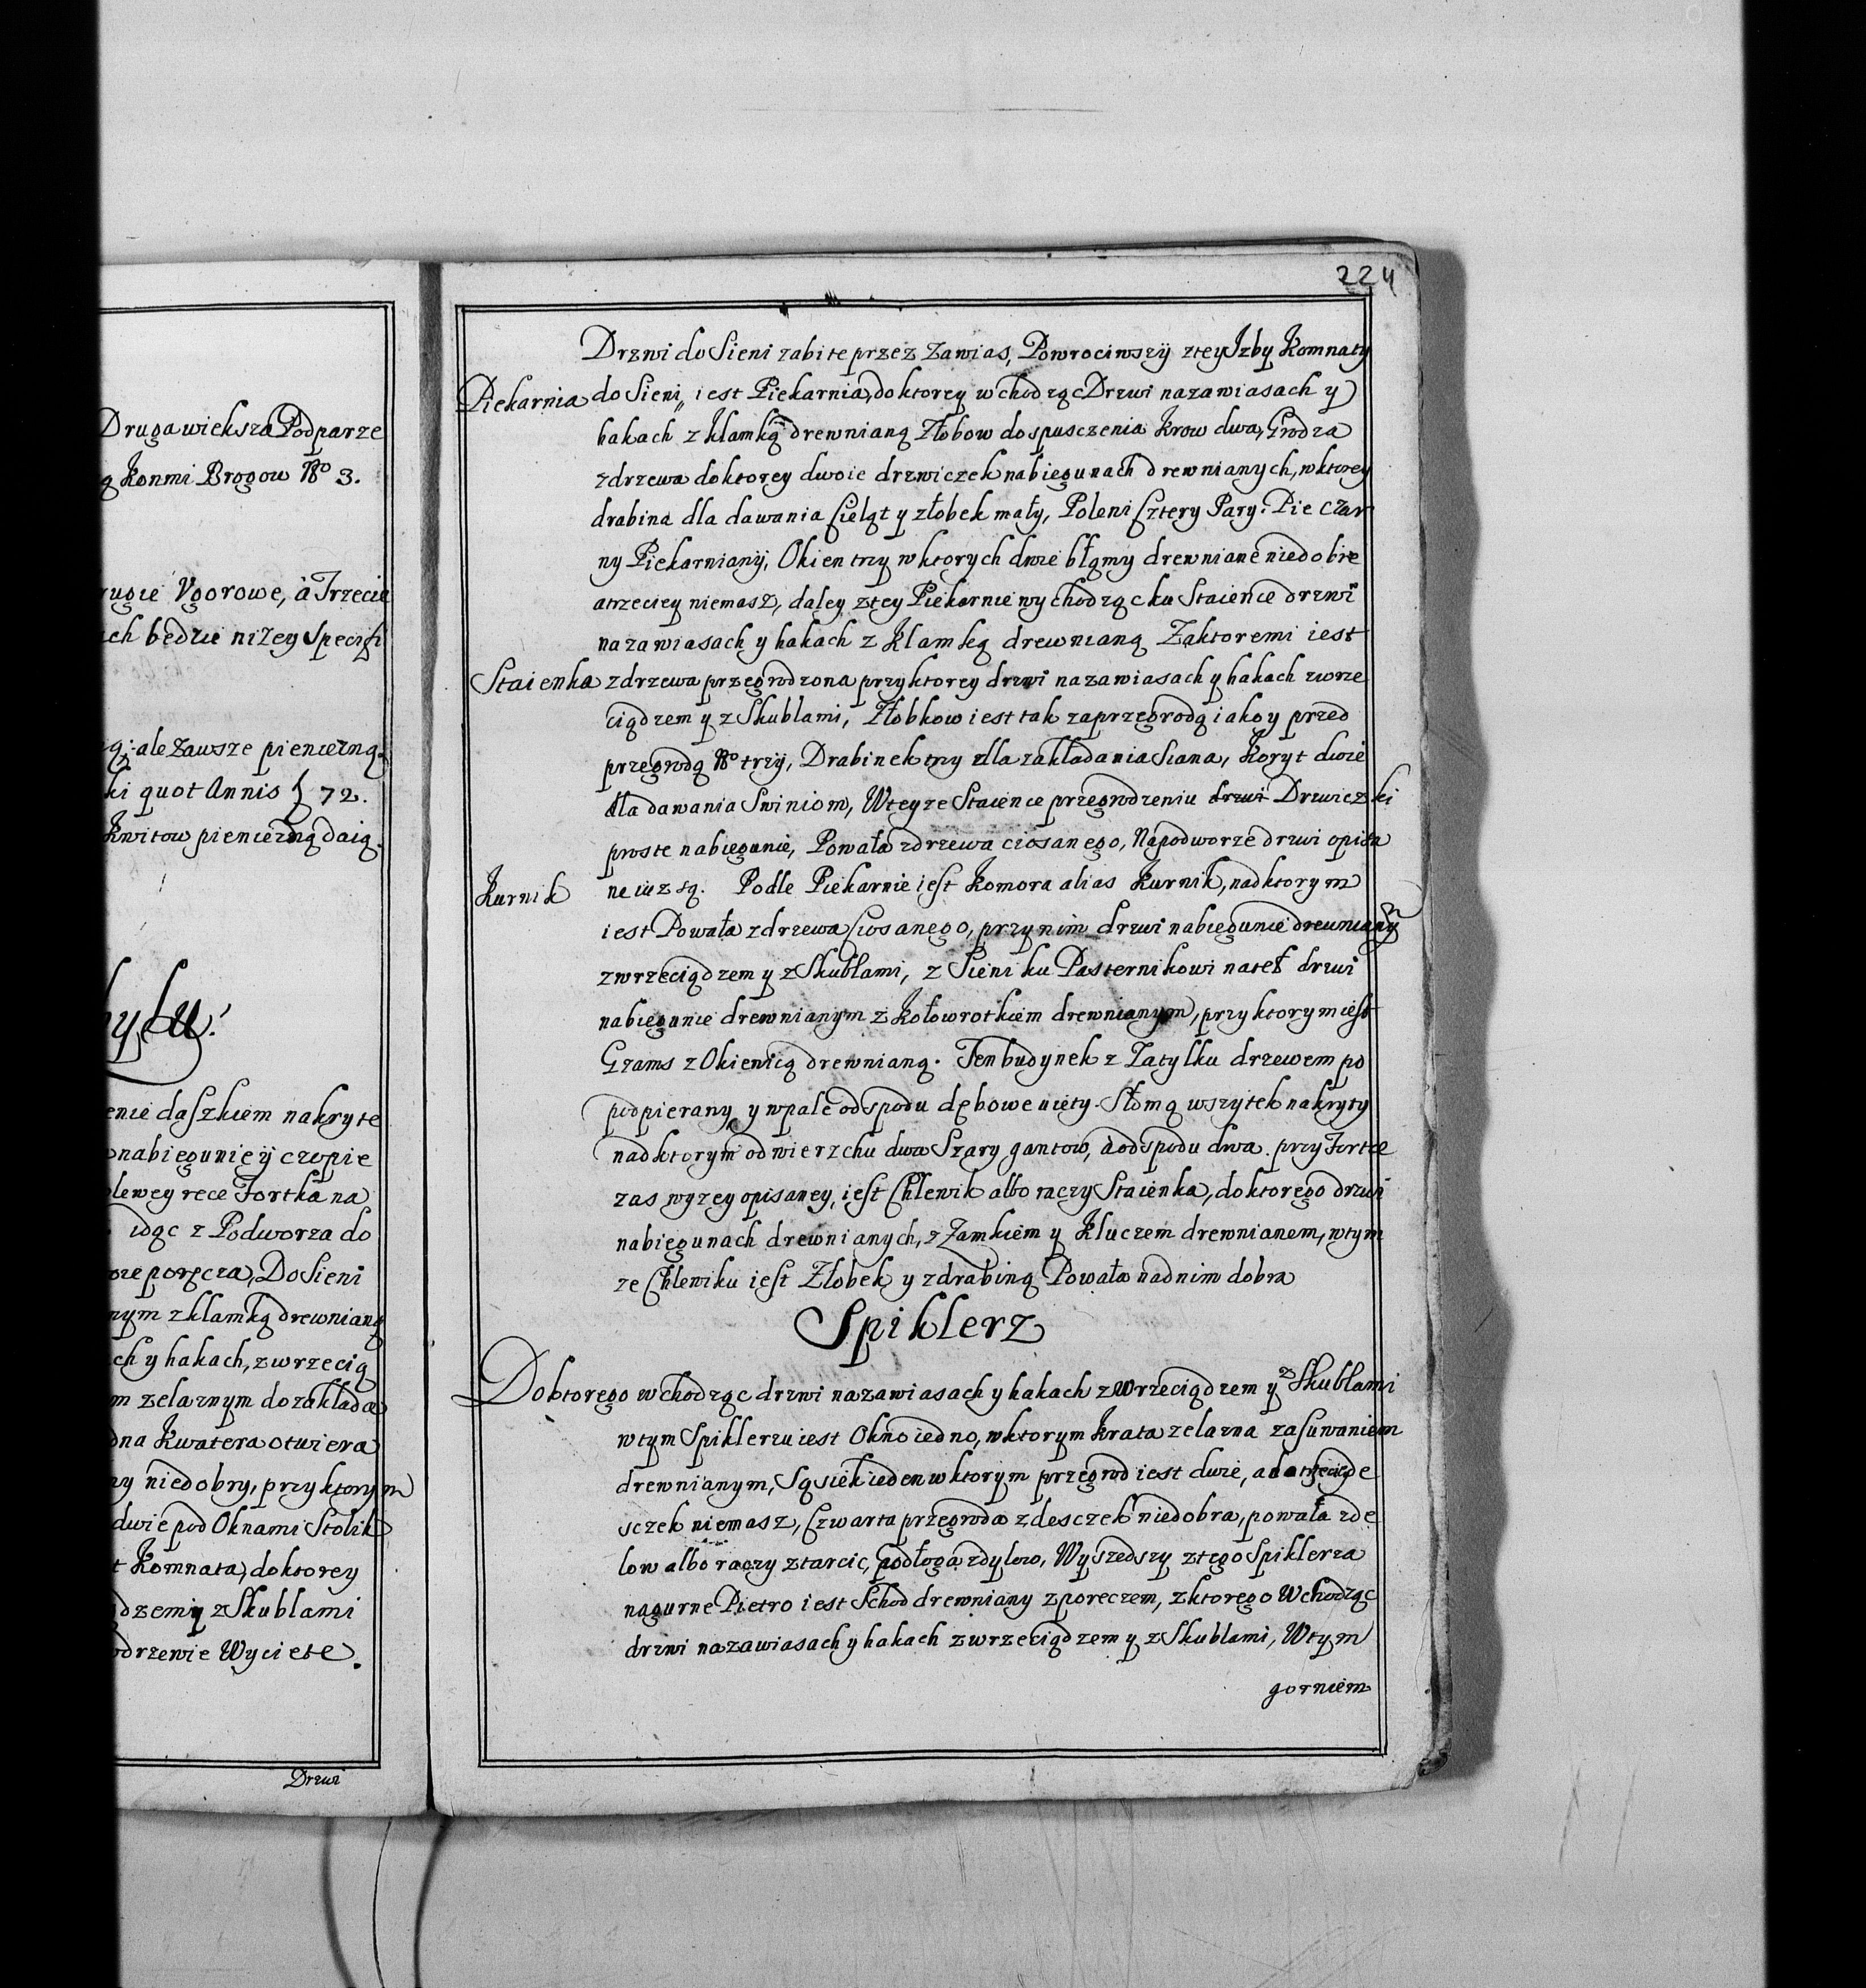 Druga wieksza Podparze
ą Konmi Brogow No 3.
rugie Vgorowe, à Trzecie
ach bedzie nizey Specifi
ą; ale zawsze pieniezną.
ki quot Annis f 72.
Kwitow pieniezną daią.
enie daszkiem nakryte
nabiegunie ÿ czopie
lewey rece Fortka na
idąc z Podworza do
poręcza, Do Sieni
nym z klamką drewnianą
ch y hakach, z wrzecią
m zelaznym do zaklada
dna Kwatera otwiera
ny niedobry, przyktorym
dwie pod Oknami Stolik
t Komnata, doktorey
dzemy z Skublami
odrzewie Wyciete.
Drzwi
224
Drzwi do Sieni zabite przez Zawias, Powrociwszÿ ztey Izby Komnaty
Piekarnia do Sieni, iest Piekarnia, doktorey wchodząc Drzwi nazawiasach y
hakach z klamką drewnianą Złobow dospusczenia Krow dwa, Grodza
zdrzewa doktorey dwoie drzwiczek nabiegunach drewnianych, wktorey
drabina dla dawania Cieląt y złobek mały, Poleni Cztery Pary. Pie czar
ny Piekarnianÿ, Okien trzy wktorych dwie błąmy drewniane niedobre
atrzeciey niemasz, daley ztey Piekarnie wychodząc ku Staience drzwi
nazawiasach y hakach z klamką drewnianą Zaktoremi iest
Staienka zdrzewa przegrodzona przyktorey drzwi nazawiasach y hakach zwrze
ciądzem y z Skublami, Złobkow iest tak zaprzegrodą iako y przed
przegrodą No trzÿ, Drabinek trzy dla zakładania Siana, Koryt dwie
dla dawania Swiniom, Wteyze Staience przegrodzeniu drzwi Drzwiczki
proste nabiegunie, Powała zdrzewa ciosanego, Napodworze drzwi opisa
Kurnik ne iuz są. Podle Piekarnie iest Komora alias Kurnik, nadktorym
iest Powała zdrzewa Ciosanego, przynim drzwi nabiegunie drewnianÿm
zwrzeciądzem y zSkublami, z Sieni ku Pasternikowi nateł drzwi
nabiegunie drewnianym z Kołowrotkiem drewnianym, przyktorym iest
Grams z Okienicą drewnianą. Ten budynek z Zatylku drzewem po
podpierany y wpale odspodu dębowe uięty. Słomą wszytek nakryty
nadktorym odwierzchu dwa Szary gantow, aodspodu dwa. przy Fortce
zas wyzey opisaney, iest Chlewik albo raczy Staienka, doktorego drzwi
nabiegunach drewnianych, z Zamkiem y Kluczem drewnianem, wtym
ze Chlewiku iest Złobek y zdrabiną Powała nadnim dobra
Spiklerz
Doktorego wchodząc drzwi nazawiasach y hakach z Wrzeciądzem y z Skublami
wtym Spiklerzu iest Okno iedno, wktorym Krata zelazna zasuwaniem
drewnianym, Sąsiek ieden wktorym przegrod iest dwie, ado trzeciey de
sczek niemasz, Czwarta przegroda zdesczek niedobra, powała zde
low albo raczy ztarcic, podłoga zdylow, Wyszedszy ztego Spiklerza
nagurne Pietro iest Schod drewniany zporeczem, zktorego Wchodząc
drzwi nazawiasach y hakach zwrzeciądzem y zSkublami, Wtym
gorniem